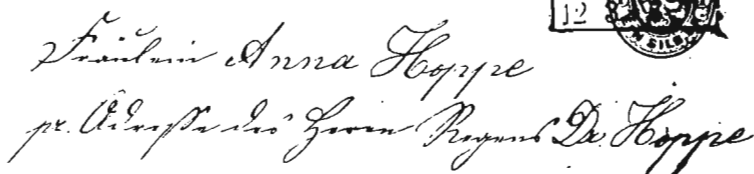 12
SILB
Fräulein Anna Hoppe
pr. Adresse des Herrn Regens Dr. Hoppe